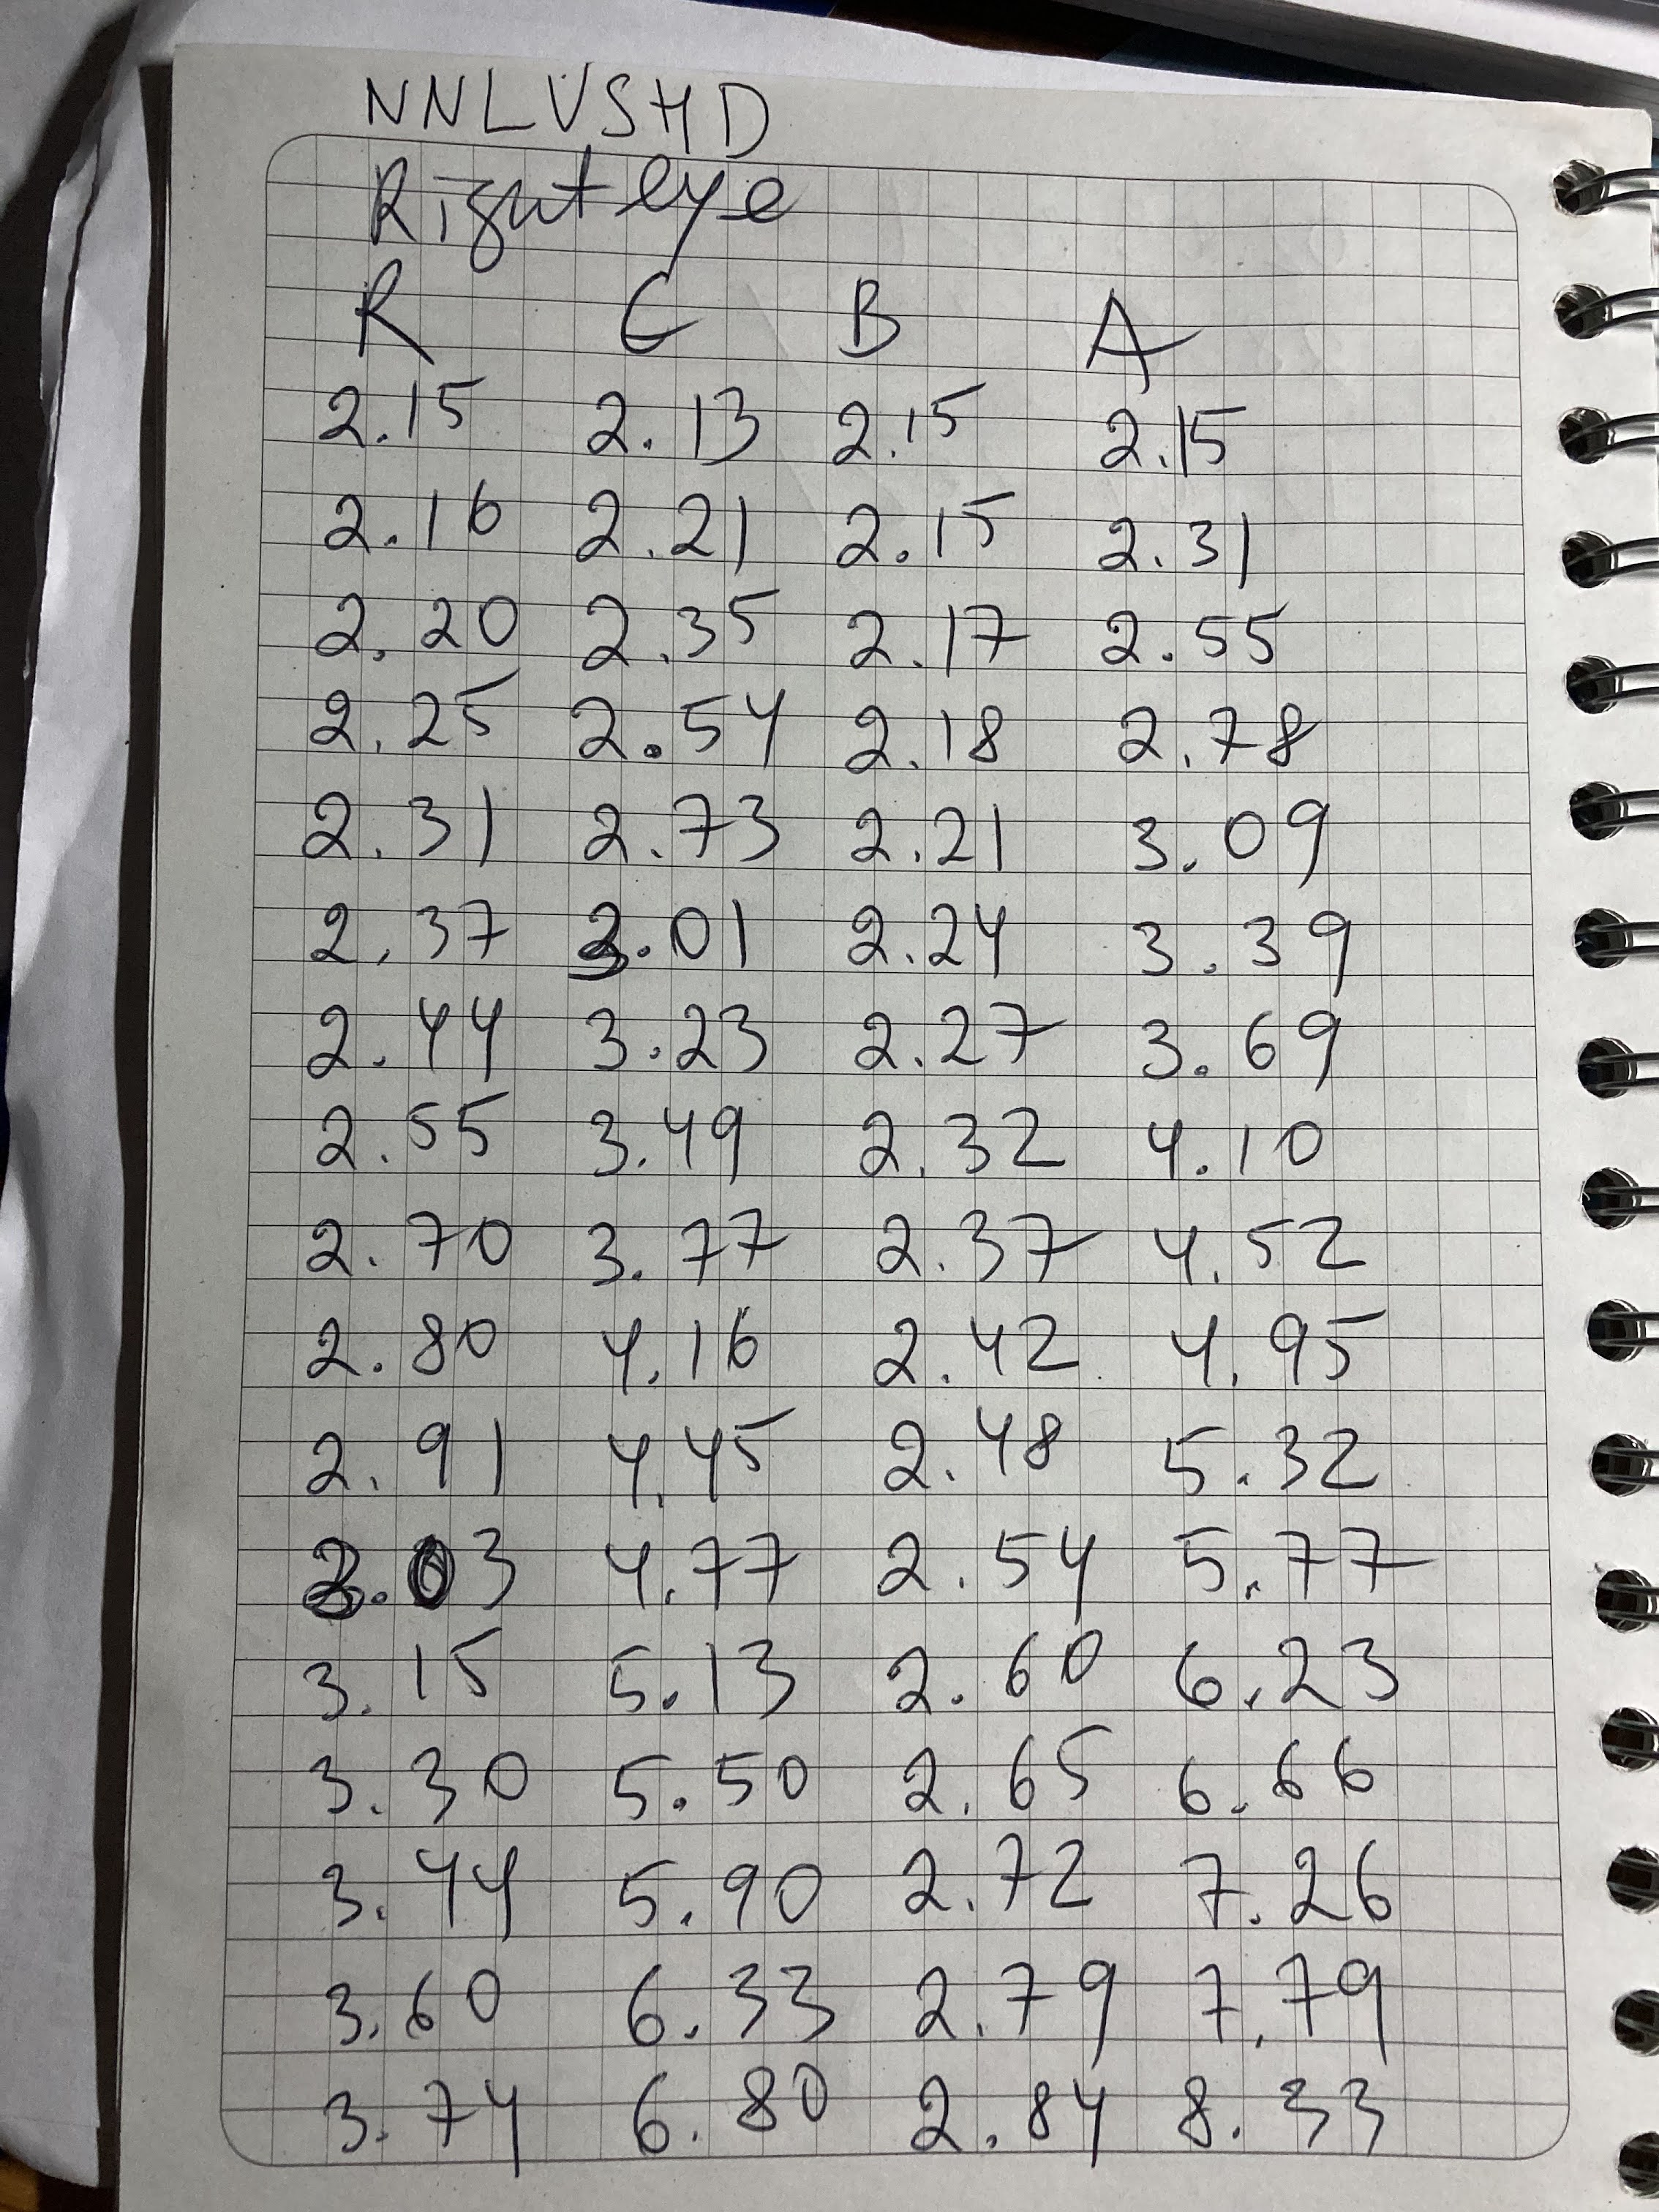 NNLVSHD
Right eye
R C B A
2.15 2.13 2.15 2.15
2.16 2.21 2.15 2.31
2.20 2.35 2.17 2.55
2.25 2.54 2.18 2.78
2.31 2.73 2.21 3.09
2.37 3.01 2.24 3.39
2.44 3.23 2.27 3.69
2.55 3.49 2.32 4.10
2.70 3.77 2.37 4.52
2.80 4.16 2.42 4.95
2.91 4.45 2.48 5.32
3.03 4.77 2.54 5.77
3.15 5.13 2.60 6.23
3.30 5.50 2.65 6.66
3.44 5.90 2.72 7.26
3.60 6.33 2.79 7.79
3.74 6.80 2.84 8.33